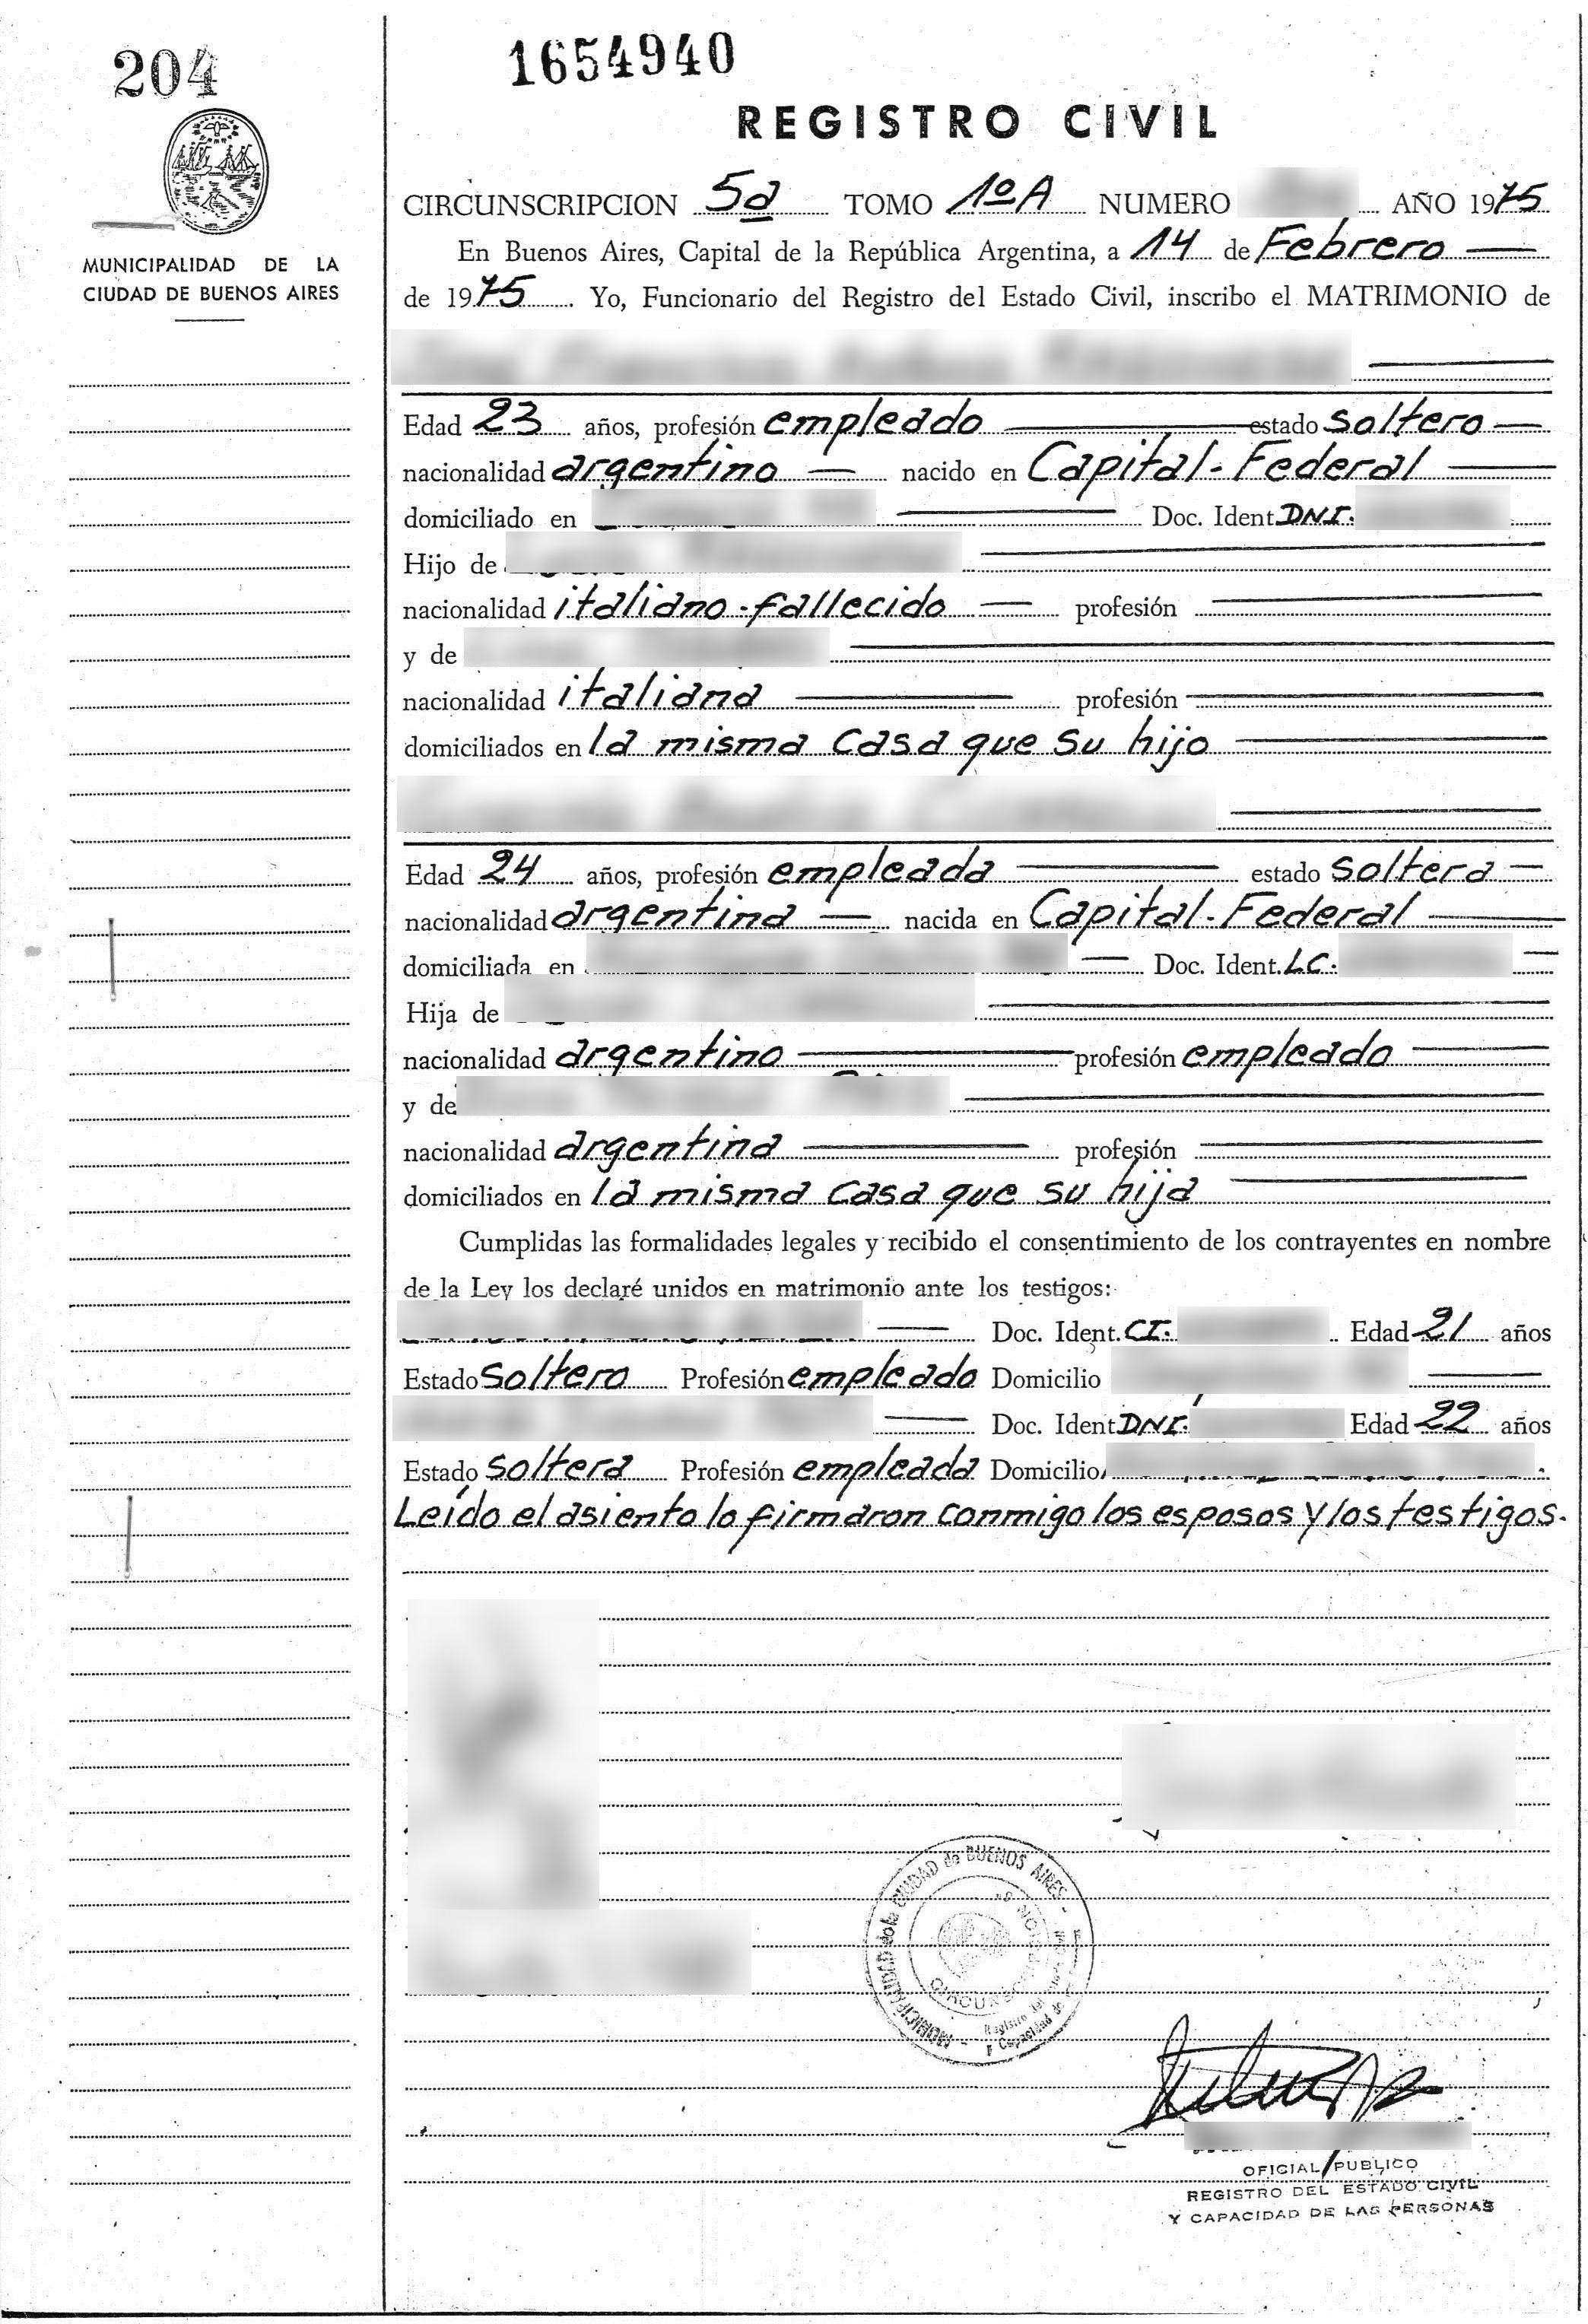 204
1654940
REGISTRO CIVIL
MUNICIPALIDAD DE LA
CIUDAD DE BUENOS AIRES
CIRCUNSCRIPCION 5a TOMO 1º A NUMERO AÑO 1975
En Buenos Aires, Capital de la República Argentina, a 14 de Febrero
de 1975. Yo, Funcionario del Registro del Estado Civil, inscribo el MATRIMONIO de
Edad 23 años, profesión empleado estado soltero
nacionalidad argentino nacido en Capital-Federal
domiciliado en Doc. Ident. DNI.
Hijo de
nacionalidad italiano-fallecido profesión
y de
nacionalidad italiana profesión
domiciliados en la misma casa que su hijo
Edad 24 años, profesión empleada estado soltera
nacionalidad argentina nacida en Capital-Federal
domiciliada en Doc. Ident. LC.
Hija de
nacionalidad argentino profesión empleado
y de
nacionalidad argentina profesión
domiciliados en la misma casa que su hija
Cumplidas las formalidades legales y recibido el consentimiento de los contrayentes en nombre
de la Ley los declaré unidos en matrimonio ante los testigos:
Doc. Ident. CI. Edad 21 años
Estado soltero Profesión empleado Domicilio
Doc. Ident. DNI. Edad 22 años
Estado soltera Profesión empleada Domicilio
Leído el asiento lo firmaron conmigo los esposos y los testigos.
MUNICIPALIDAD de la CIUDAD de BUENOS AIRES
OFICIAL PUBLICO
REGISTRO DEL ESTADO CIVIL
Y CAPACIDAD DE LAS PERSONAS